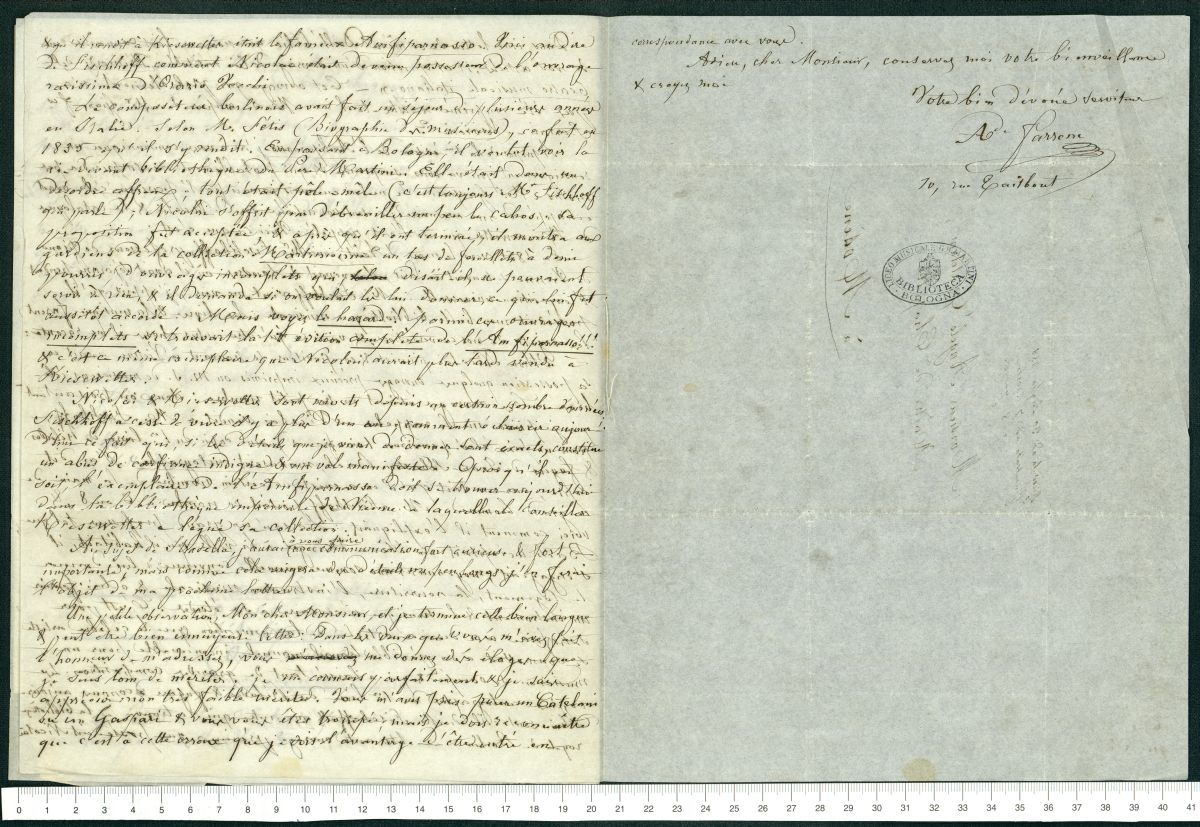 qu'il vendit à Kiesewetter était le fameux Amfiparnasso. Puis au dire
de Fischhoff comment Nicolai était devenu possesseur de l'ouvrage
rarissime d'Orazio Vecchi.
Le compositeur berlinois avait fait un séjour de plusieurs années
en Italie. Selon Mr Fétis (Biographie des musiciens), ce fut en
1835 qu'il s'y rendit. En passant à Bologne, il voulut voir la
bibliothèque du Père Martini. Elle était dans un
désordre affreux; tout était pêle mêle (c'est toujours Mr Fischhoff
qui parle). Nicolai s'offrit pour débrouiller un peu le cahos; sa
proposition fut acceptée & après qu'il eut terminé, il montra aux
gardiens de la collection un tas de feuillets à demi
pourris d'ouvrages incomplets qui disait-il, ne pouvaient
servir à rien, & il demanda si on voulait les lui donner ce qui lui fut
aussitôt accordé. Mais voyez le hazard, parmi ces ouvrages
incomplets se trouvait la 1re édition complète de l'Amfiparnasso!!
& c'est ce même exemplaire que Nicolai aurait plus tard vendu à
Kiesewetter.
Nicolai & Kiesewetter sont morts depuis un certain nombre d'années
Fischhoff a cessé de vivre il y a plus d'un an; comment éclaircir aujourd'
hui ce fait qui, si les détails que je viens de donner sont exacts, constitue
un abus de confiance indigne & un vol manifeste. Quoiqu'il en
soit, l'exemplaire de l'Amfiparnasso doit se trouver aujourd'hui
dans la Bibliothèque impériale de Vienne à laquelle le Conseiller
Kiesewetter a légué sa collection.
Au sujet de Stradella, j'aurai à vous faire une communication fort curieuse & fort
importante, mais comme cela exigera des détails un peu longs j'en ferai
l'objet de ma prochaine lettre.
Une petite observation, Mon cher Monsieur, et je termine cette bien longue
& peut être bien ennuyeuse lettre. Dans les deux que vous m'avez fait
l'honneur de m'adresser, vous me donnez des éloges que
je suis loin de mériter; je me connais parfaitement & je sais
apprécier mon très faible mérite. Vous m'avez pris pour un Catelani
ou un Gaspari & vous vous êtes trompé; mais je dois reconnaître
que c'est à cette erreur que je dois l'avantage d'être entré en
correspondance avec vous.
Adieu, cher Monsieur, conservez moi votre bienveillance
& croyez moi
Votre bien dévoué serviteur
Ad. Farrenc
10, rue Taitbout
LICEO MUSICALE G.B. MARTINI
BIBLIOTECA
BOLOGNA
0 1 2 3 4 5 6 7 8 9 10 11 12 13 14 15 16 17 18 19 20 21 22 23 24 25 26 27 28 29 30 31 32 33 34 35 36 37 38 39 40 41